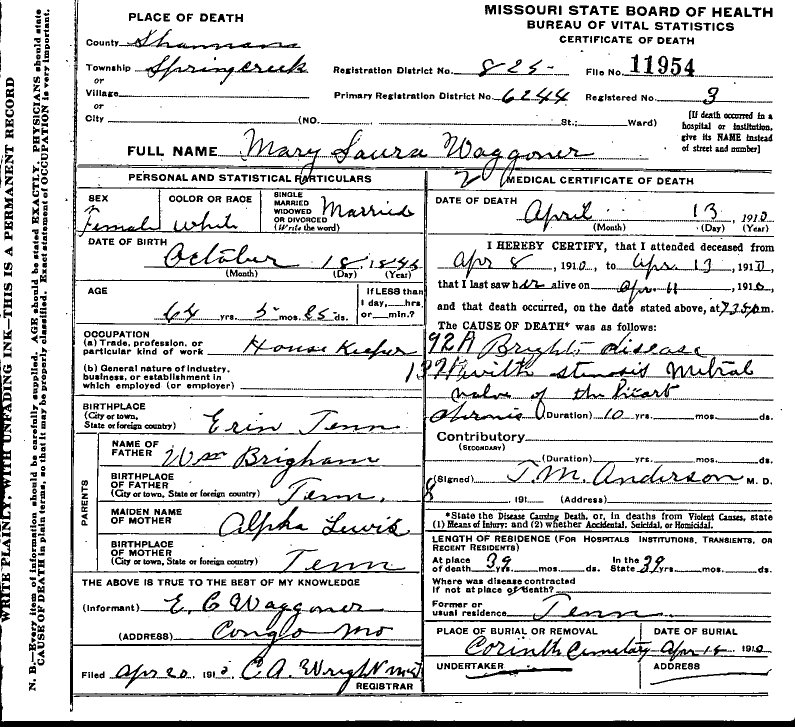 MISSOURI STATE BOARD OF HEALTH
BUREAU OF VITAL STATISTICS
CERTIFICATE OF DEATH
PLACE OF DEATH
County Shannon
Township Springcreek
or
Village
or
City (NO. St.; Ward)
Registration District No. 825 File No. 11954
Primary Registration District No. 6244 Registered No. 3
[If death occurred in a hospital or institution, give its NAME instead of street and number]
FULL NAME Mary Laura Waggoner
PERSONAL AND STATISTICAL PARTICULARS
SEX Female
COLOR OR RACE White
SINGLE MARRIED WIDOWED OR DIVORCED (Write the word) Married
DATE OF BIRTH
October 18, 1845
(Month) (Day) (Year)
AGE
64 yrs. 5 mos. 25 ds.
If LESS than 1 day, hrs. or min.?
OCCUPATION
(a) Trade, profession, or particular kind of work House Keeper
(b) General nature of industry, business, or establishment in which employed (or employer)
BIRTHPLACE
(City or town, State or foreign country) Erin Tenn
PARENTS
NAME OF FATHER Wm Brigham
BIRTHPLACE OF FATHER (City or town, State or foreign country) Tenn.
MAIDEN NAME OF MOTHER Alpha Lewis
BIRTHPLACE OF MOTHER (City or town, State or foreign country) Tenn
THE ABOVE IS TRUE TO THE BEST OF MY KNOWLEDGE
(Informant) E. C Waggoner
(ADDRESS) Conglo Mo
Filed Apr 20 1910 C.A. Wright
REGISTRAR
2 MEDICAL CERTIFICATE OF DEATH
DATE OF DEATH
April 13, 1910
(Month) (Day) (Year)
I HEREBY CERTIFY, that I attended deceased from
Apr 8, 1910, to Apr. 13, 1910,
that I last saw her alive on Apr. 11, 1910,
and that death occurred, on the date stated above, at 7.35 p m.
The CAUSE OF DEATH* was as follows:
92A Brights disease
with stenosis Mitral
valve of the heart
chronic (Duration) 10 yrs. mos. ds.
Contributory
(SECONDARY)
(Duration) yrs. mos. ds.
(Signed) T.M. Anderson M. D.
, 191 (Address)
*State the Disease Causing Death, or, in deaths from Violent Causes, state
(1) Means of Injury; and (2) whether Accidental, Suicidal, or Homicidal.
LENGTH OF RESIDENCE (FOR HOSPITALS INSTITUTIONS, TRANSIENTS, OR RECENT RESIDENTS)
At place of death 39 yrs. mos. ds. In the State 39 yrs. mos. ds.
Where was disease contracted
if not at place of death?
Former or
usual residence Tenn
PLACE OF BURIAL OR REMOVAL
Corinth Cemetary
DATE OF BURIAL
Apr 15 1910
UNDERTAKER
ADDRESS
WRITE PLAINLY, WITH UNFADING INK—THIS IS A PERMANENT RECORD
N. B.—Every item of information should be carefully supplied. AGE should be stated EXACTLY. PHYSICIANS should state
CAUSE OF DEATH in plain terms, so that it may be properly classified. Exact statement of OCCUPATION is very important.